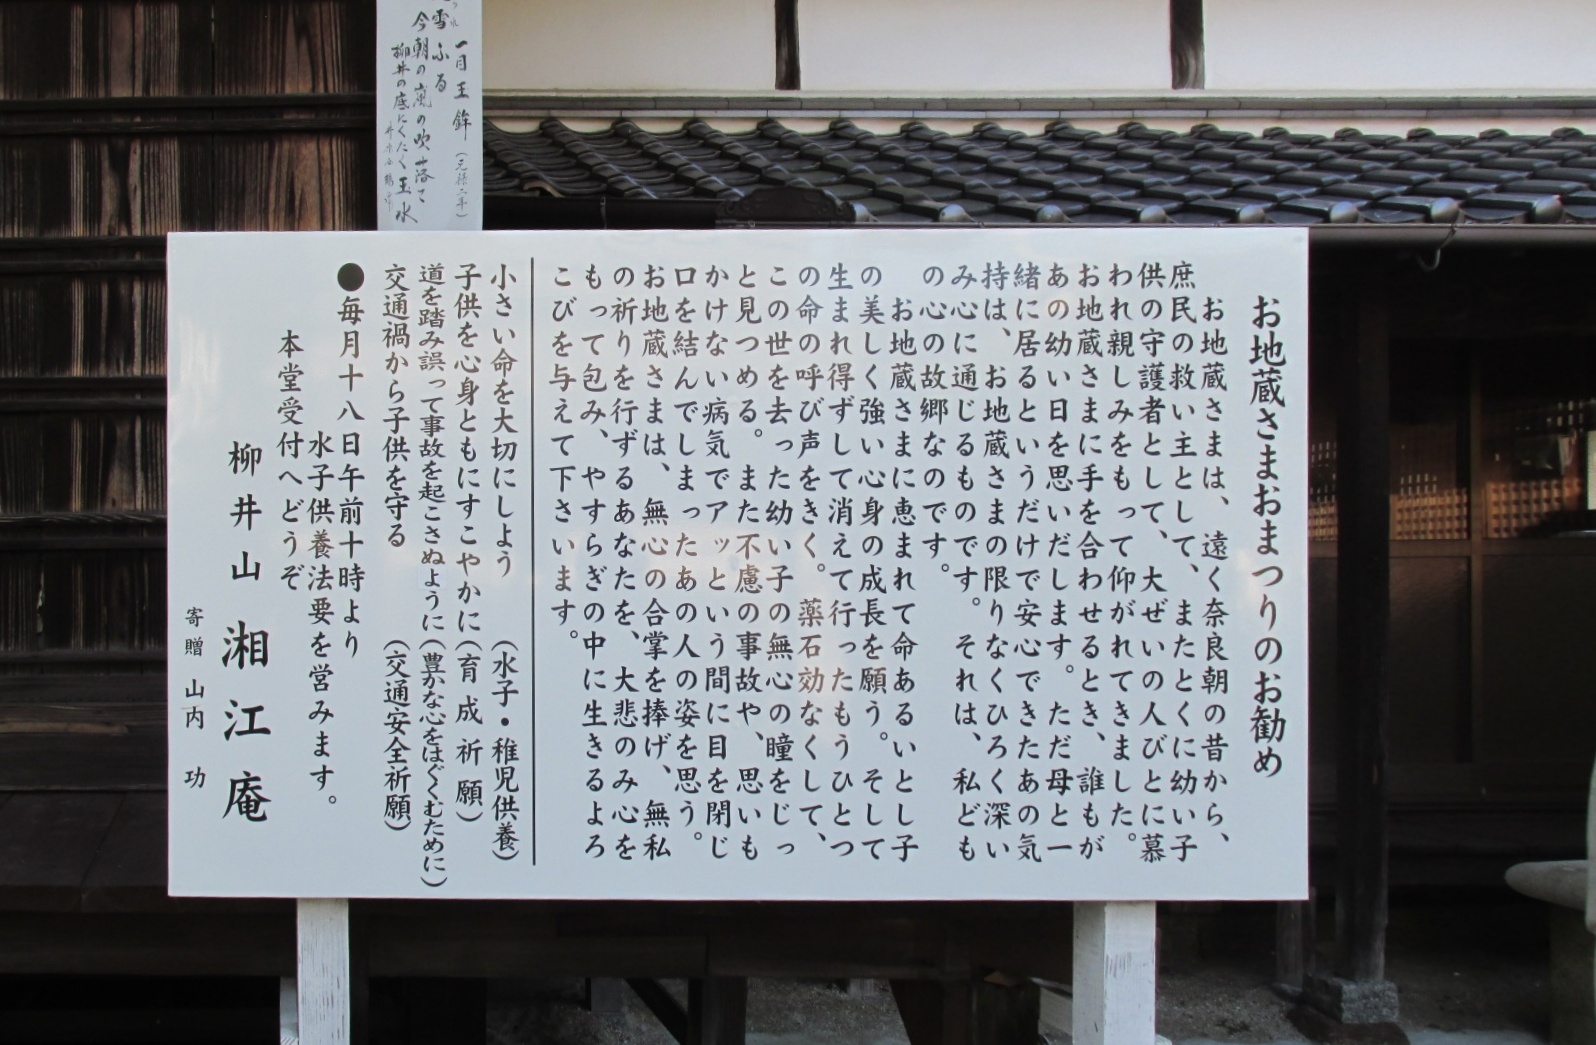 お地蔵さまおまつりのお勧め
お地蔵さまは、遠く奈良朝の昔から、
庶民の救い主として、またとくに幼い子
供の守護者として、大ぜいの人びとに慕
われ親しみをもって仰がれてきました。
お地蔵さまに手を合わせるとき、誰もが
あの幼い日を思いだします。ただ母と一
緒に居るというだけで安心できたあの気
持は、お地蔵さまの限りなくひろく深い
み心に通じるものです。それは、私ども
の心の故郷なのです。
お地蔵さまに恵まれて命あるいとし子
の美しく強い心身の成長を願う。そして
生まれ得ずして消えて行ったもうひとつ
の命の呼び声をきく。薬石効なくして、
この世を去った幼い子の無心の瞳をじっ
と見つめる。また不慮の事故や、思いも
かけない病気でアッという間に目を閉じ
口を結んでしまったあの人の姿を思う。
お地蔵さまは、無心の合掌を捧げ、無私
の祈りを行ずるあなたを、大悲のみ心を
もって包み、やすらぎの中に生きるよろ
こびを与えて下さいます。
小さい命を大切にしよう (水子・稚児供養)
子供を心身ともにすこやかに (育成祈願)
道を踏み誤って事故を起こさぬように (豊かな心をはぐくむために)
交通禍から子供を守る (交通安全祈願)
●毎月十八日午前十時より
水子供養法要を営みます。
本堂受付へどうぞ
柳井山 湘江庵
寄贈 山内 功
一目玉鉾 (元禄二年)
雪ふる
今朝の嵐の吹落て
柳井の底にくたく玉水